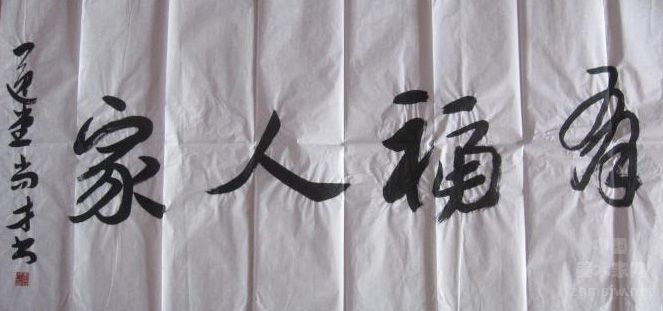 有福人家
一道堂尚才书
中国
美术家网
zgmsjw.com